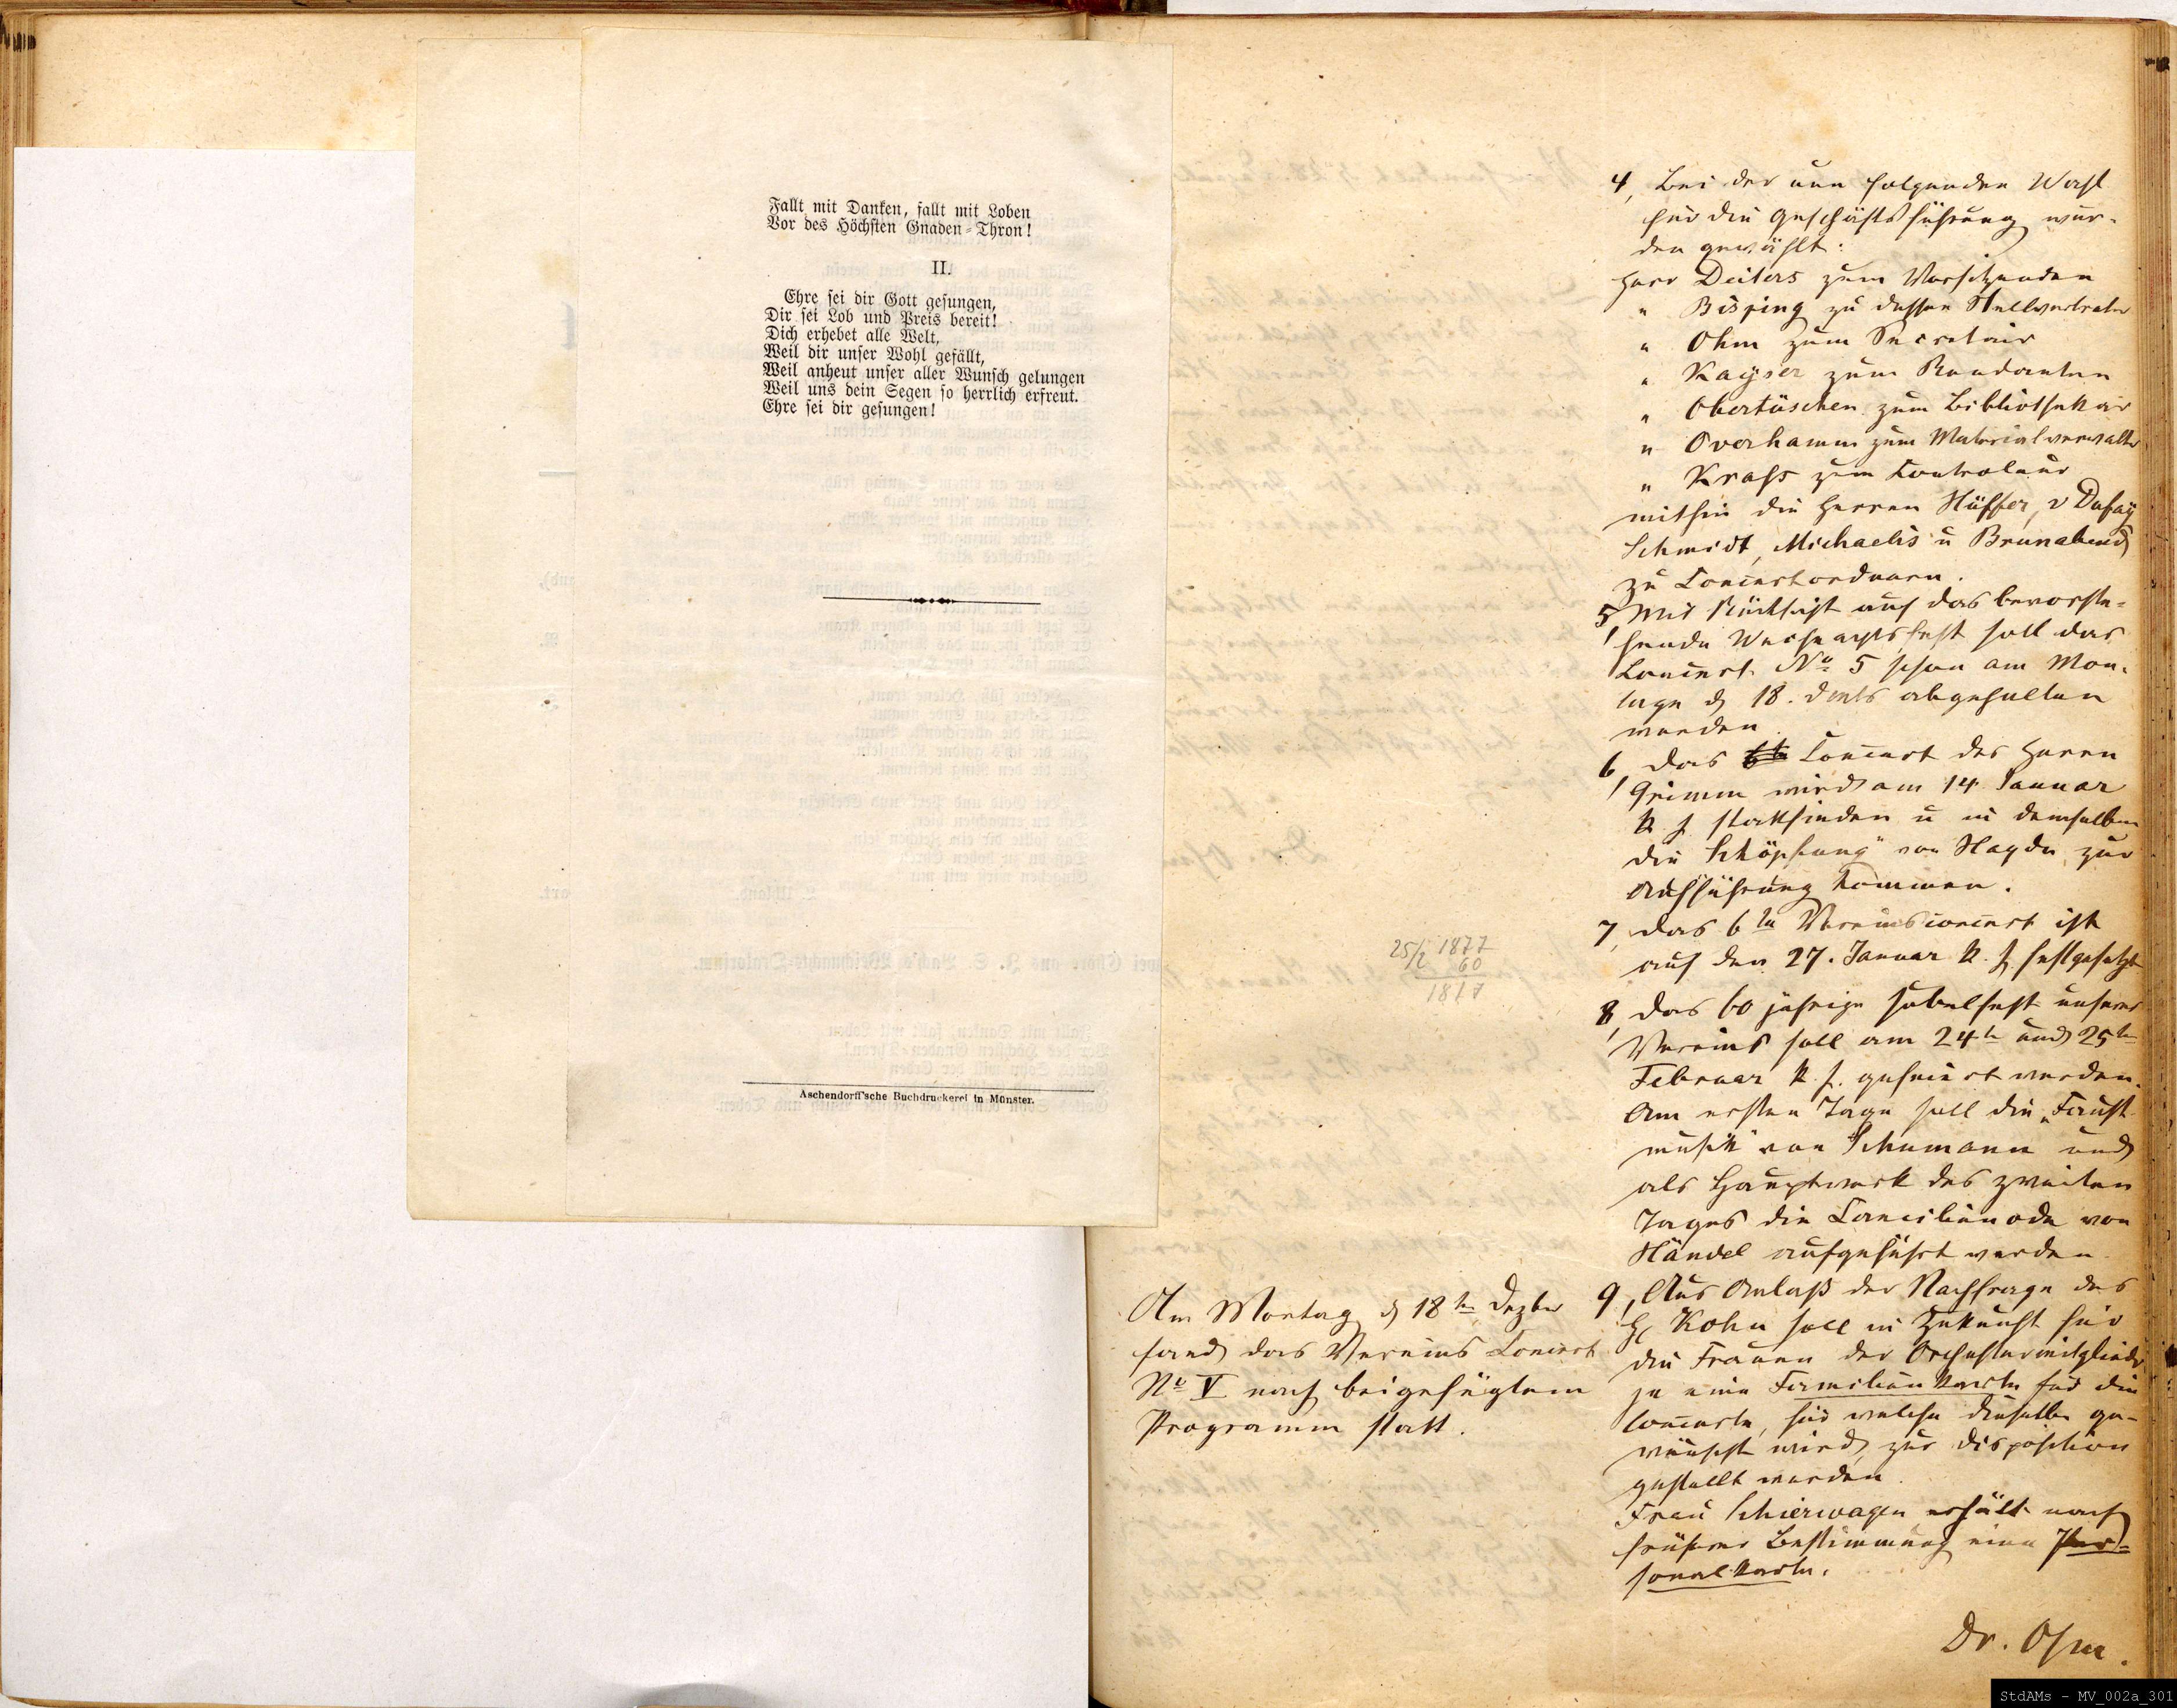 Fallt mit Danken, fallt mit Loben
Vor des Höchsten Gnaden-Thron!
II.
Ehre sei dir Gott gesungen,
Dir sei Lob und Preis bereit!
Dich erhebet alle Welt,
Weil dir unser Wohl gefällt,
Weil anheut unser aller Wunsch gelungen
Weil uns dein Segen so herrlich erfreut.
Ehre sei dir gesungen!
Aschendorff'sche Buchdruckerei in Münster.
25/2 1877
60
1817
Am Montag d 18t Dezber
fand das Vereins Concert
No V nach beigefügtem
Programm statt.
4, Bei der nun folgenden Wahl
für die Geschäftsführung wur-
den gewählt:
Herr Deiters zum Vorsitzenden
" Bisping zu dessen Stellvertreter
" Ohm zum Secretair
" Kayser zum Rendanten
" Obertüschen zum Bibliothekar
" Overhamm zum Materialverwalter
" Krass zum Controleur
mithin die Herren Hüffer, v Dufay
Schmidt, Michaelis u Brunabend
zu Concertordnern.
5, Mit Rücksicht auf das bevorste-
hende Weihnachtsfest soll das
Concert No 5 schon am Mon-
tage d 18. dMts abgehalten
werden.
6, Das Concert des Herrn
Grimm wird am 14 Januar
k J stattfinden u in demselben
die Schöpfung" von Haydn zur
Aufführung kommen.
7, Das 6te Vereinsconcert ist
auf den 27. Januar k. J. festgesetzt
8, Das 60 jährige Jubelfest unseres
Vereins soll am 24t und 25t
Februar k. J. gefeiert werden.
Am ersten Tage soll die „Faust-
musik" von Schumann und
als Hauptwerk des zweiten
Tages die Caecilienode von
Händel aufgeführt werden.
9, Aus Anlaß der Nachfrage des
H Kohn soll in Zukunft für
die Frauen der Orchestermitglieder
je eine Familienkarte für die
Concerte, für welche dieselbe ge-
wünscht wird, zur Disposition
gestellt werden.
Frau Schierwagen erhält nach
früherer Bestimmung eine Per-
sonalkarte.
Dr. Ohm.
StdAMs - MV_002a_301